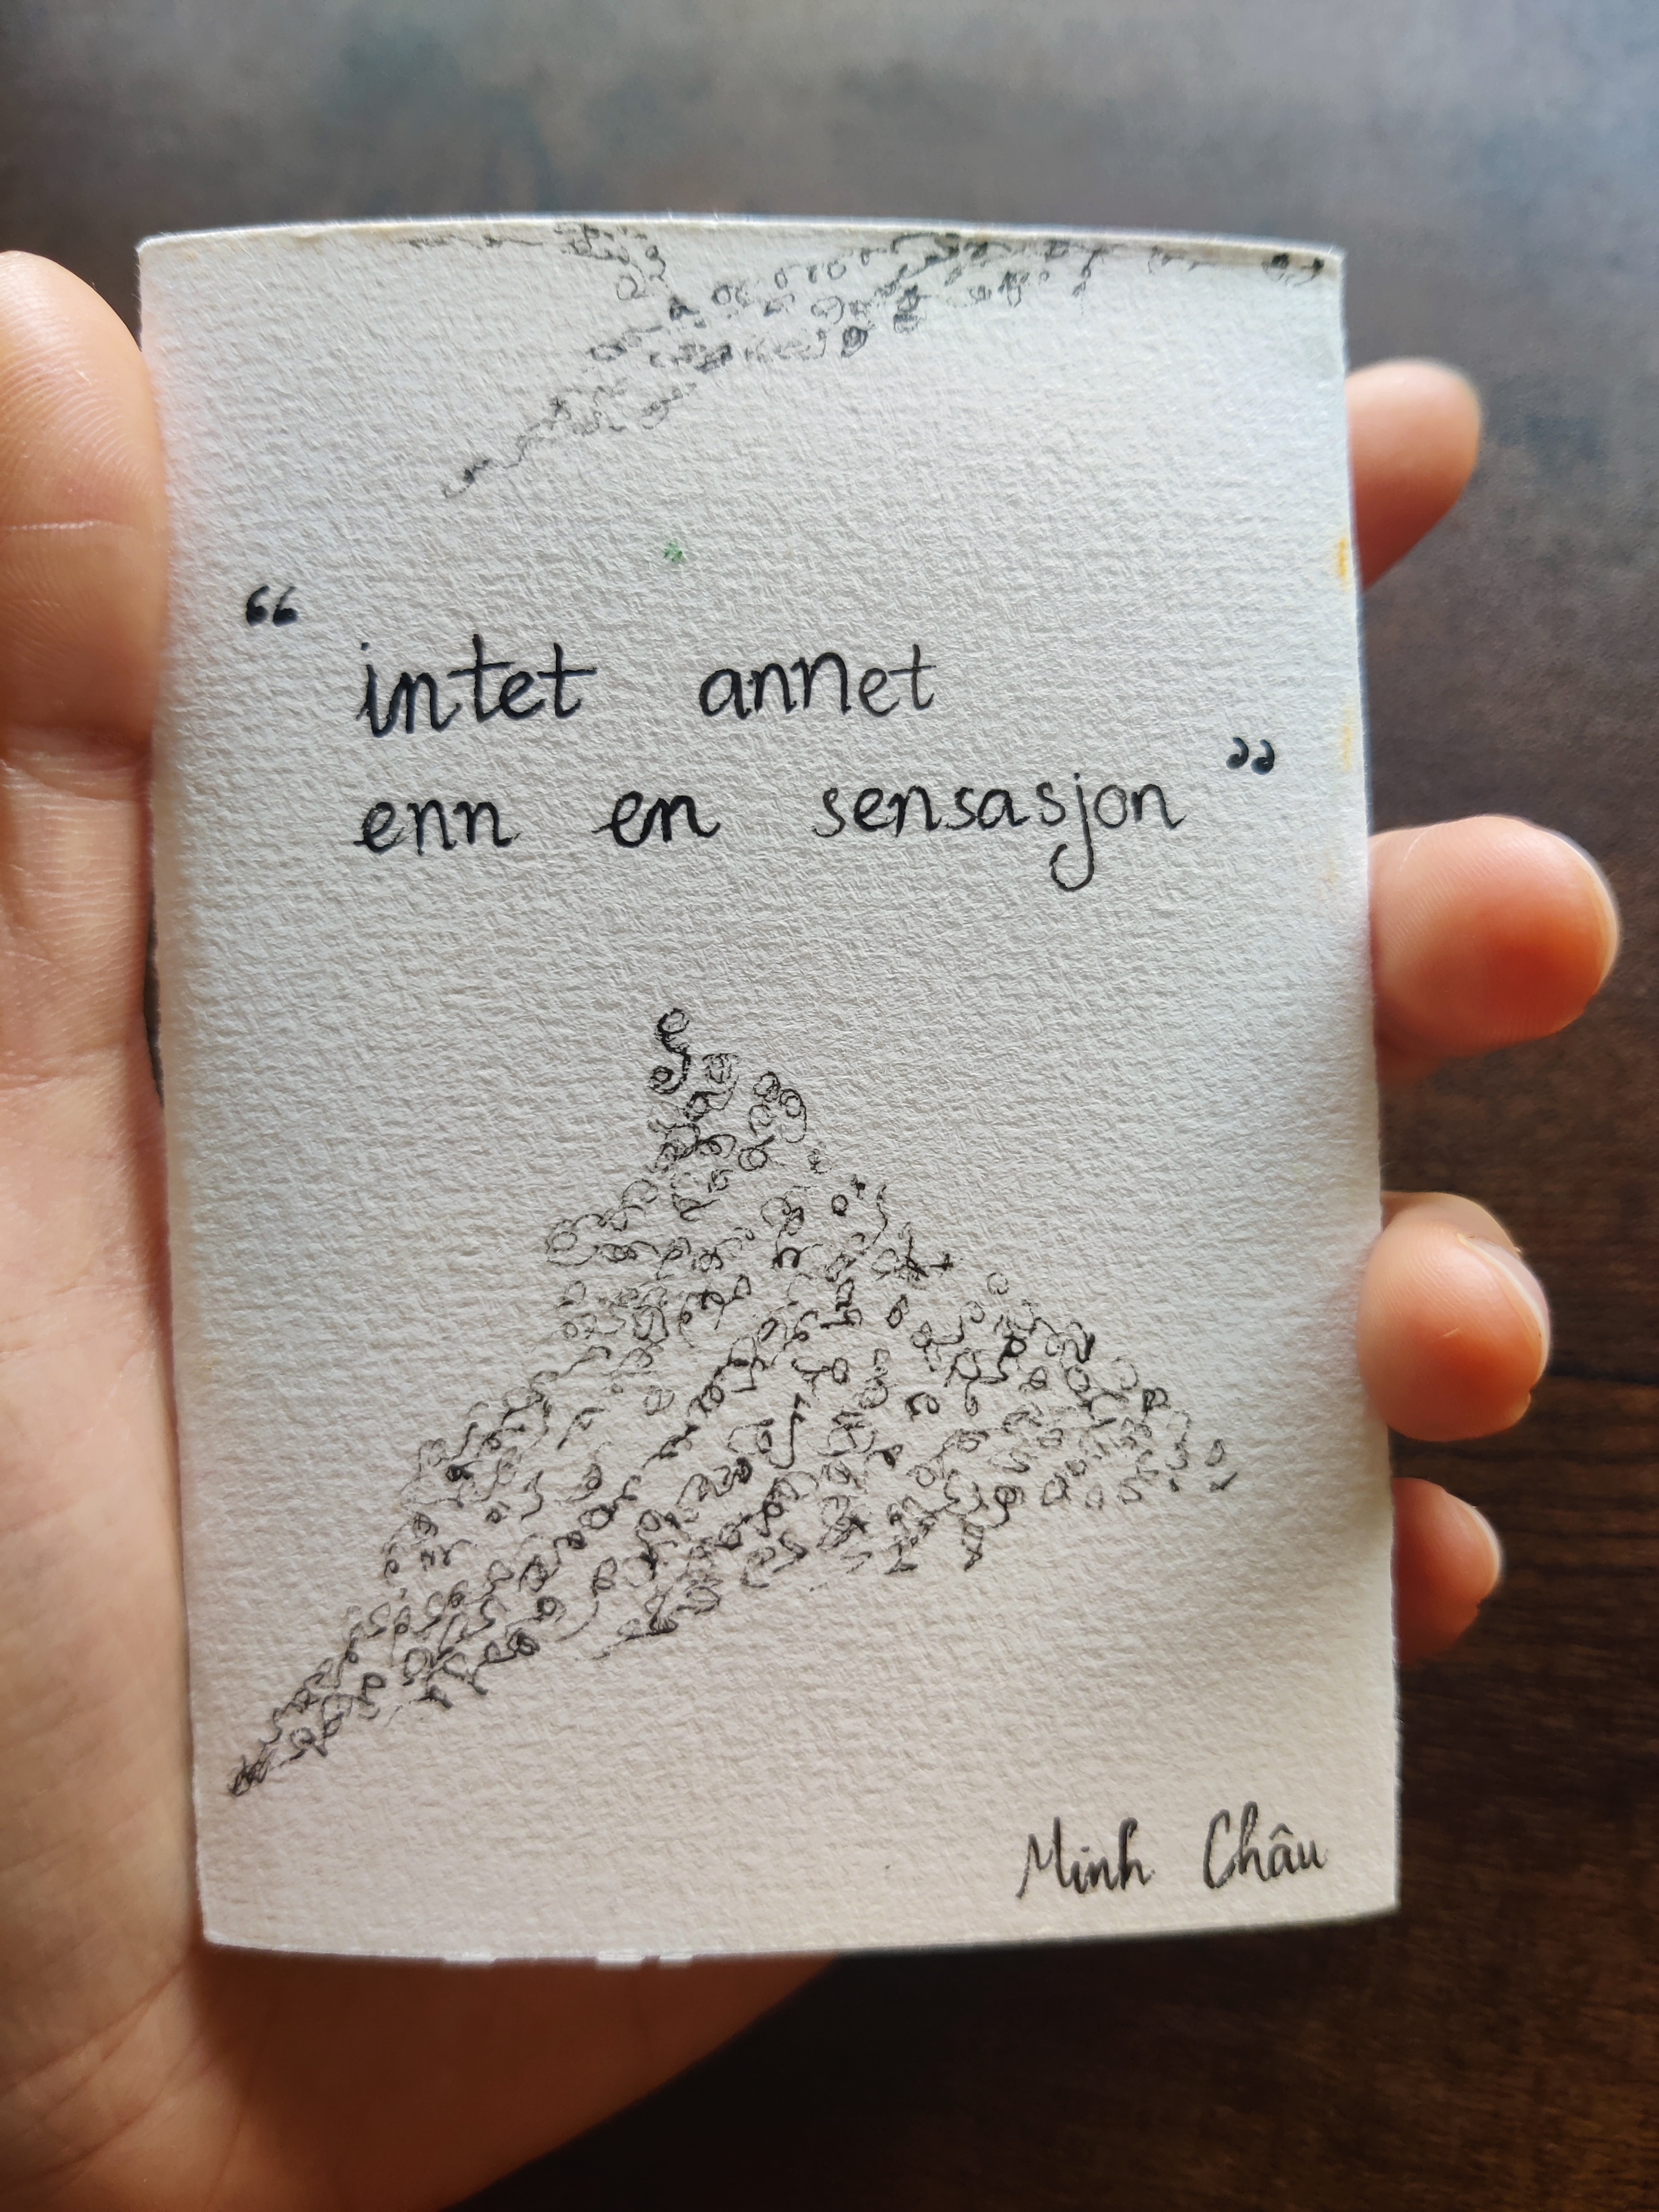 “ intet annet
enn en sensasjon ”
Minh Châu